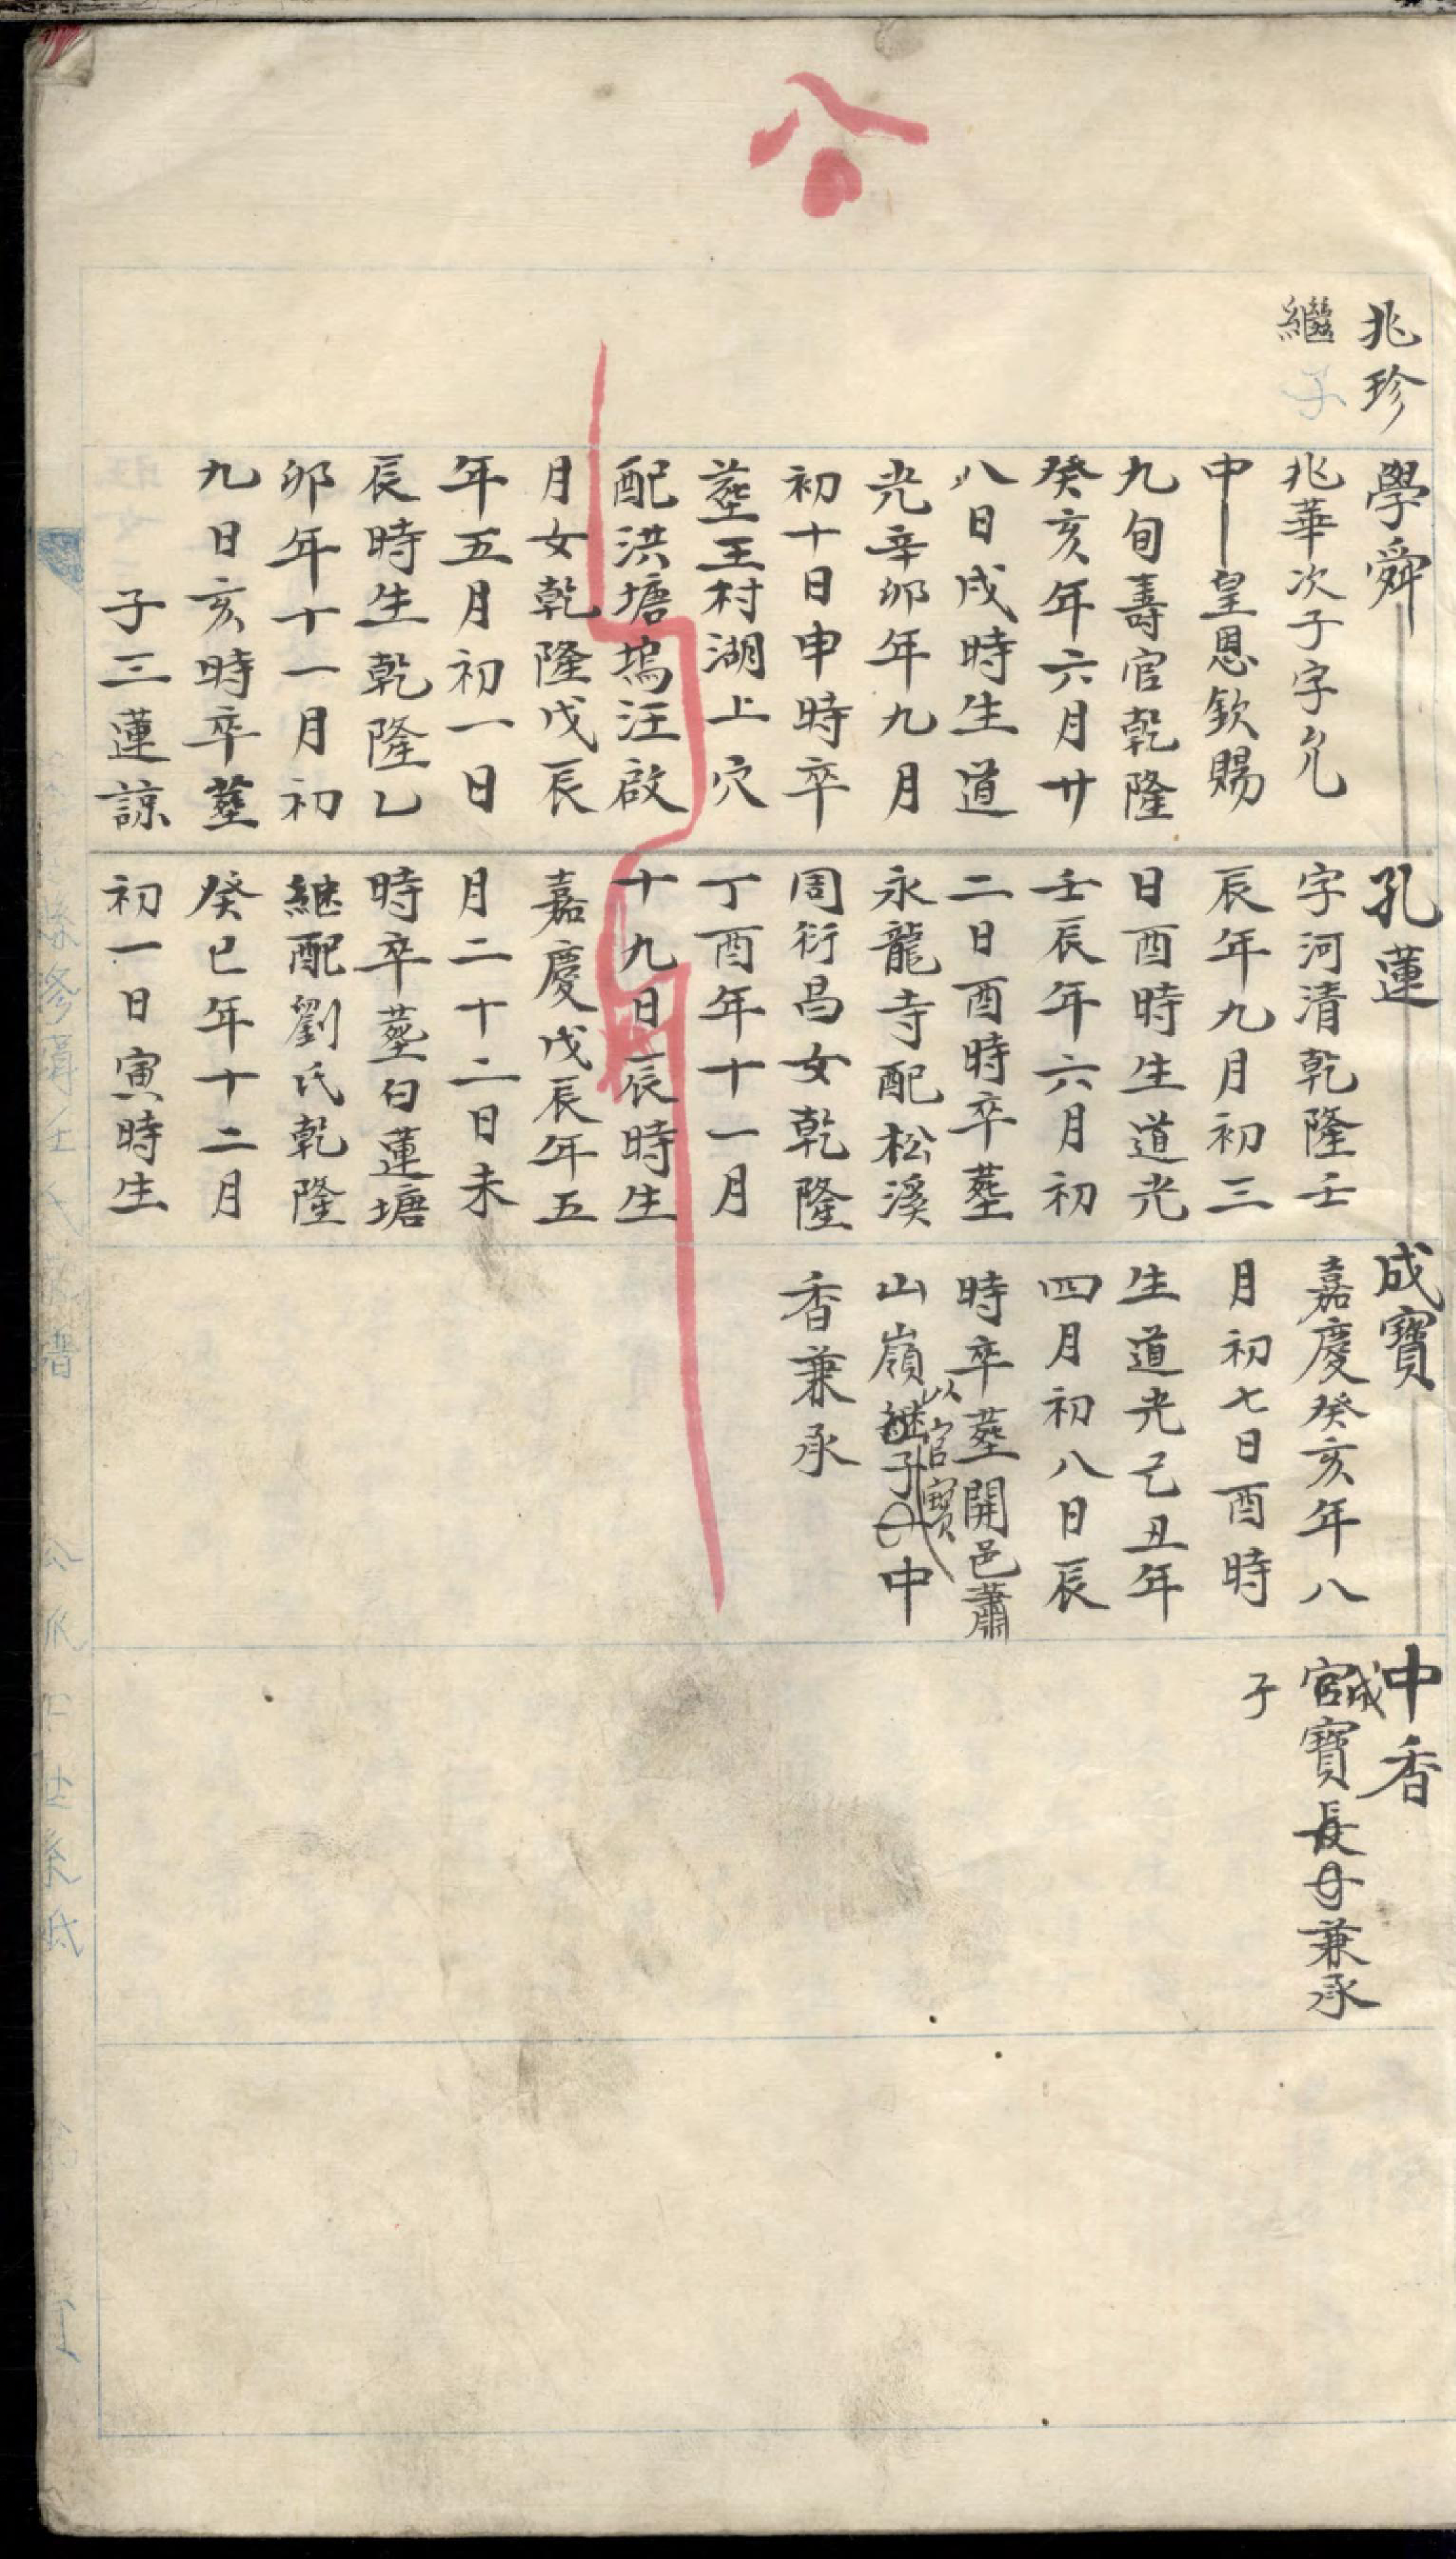 兆珍
繼子
學舜
兆華次子字允
中皇恩欽賜
九旬壽官乾隆
癸亥年六月廿
八日戌時生道
光辛卯年九月
初十日申時卒
塟王村湖上穴
配洪塘塢汪啟
月女乾隆戊辰
年五月初一日
辰時生乾隆乙
卯年十一月初
九日亥時卒塟
子三蓮諒
孔蓮
字河清乾隆壬
辰年九月初三
日酉時生道光
壬辰年六月初
二日酉時卒塟
永龍寺配松溪
周衍昌女乾隆
丁酉年十一月
十九日辰時生
嘉慶戊辰年五
月二十二日未
時卒塟白蓮塘
継配劉氏乾隆
癸巳年十二月
初一日寅時生
成寶
嘉慶癸亥年八
月初七日酉時
生道光己丑年
四月初八日辰
時卒塟開邑蕭
以官寶
山嶺継子中
香兼承
中香
成
官寶長子兼承
子